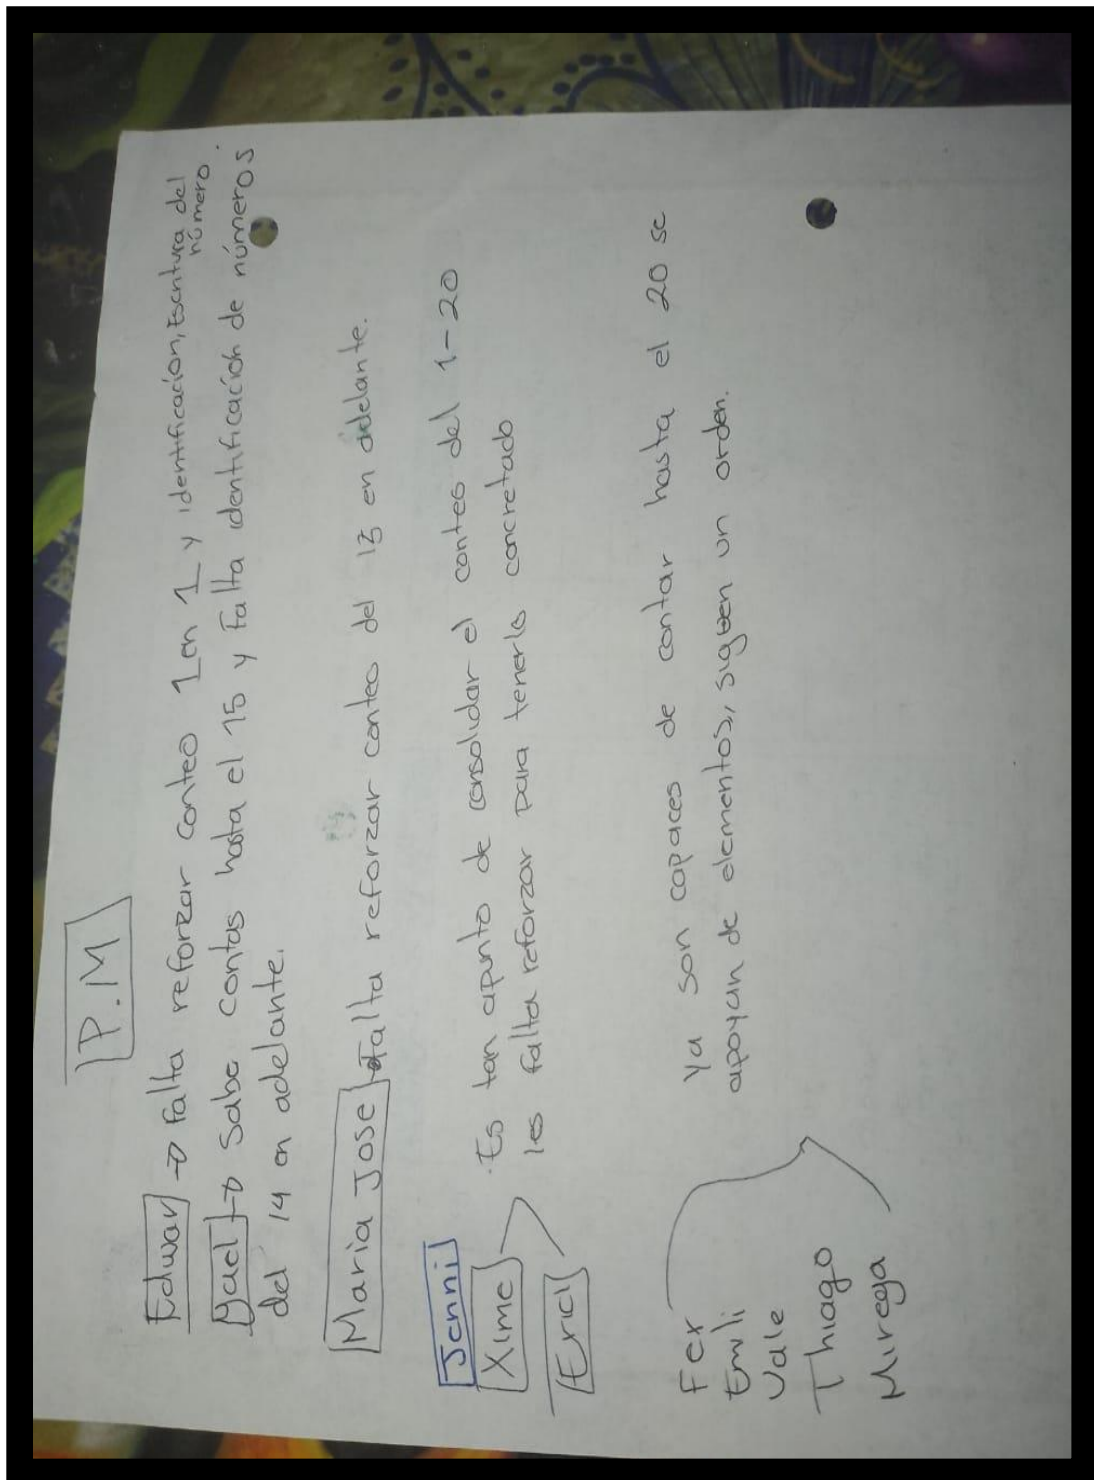 P.M
Edwar → falta reforzar conteo 1 en 1 y identificación, Escritura del número.
Yael → Sabe contas hasta el 15 y Falta identificación de números
del 14 en adelante.
Maria Jose → Falta reforzar conteo del 13 en adelante.
Jenni
Xime Es tan apunto de consolidar el conteo del 1-20
Erick les falta reforzar para tenerlo concretado
Fer Ya son capaces de contar hasta el 20 se
Emili apoyan de elementos, siguen un orden.
Vale
Thiago